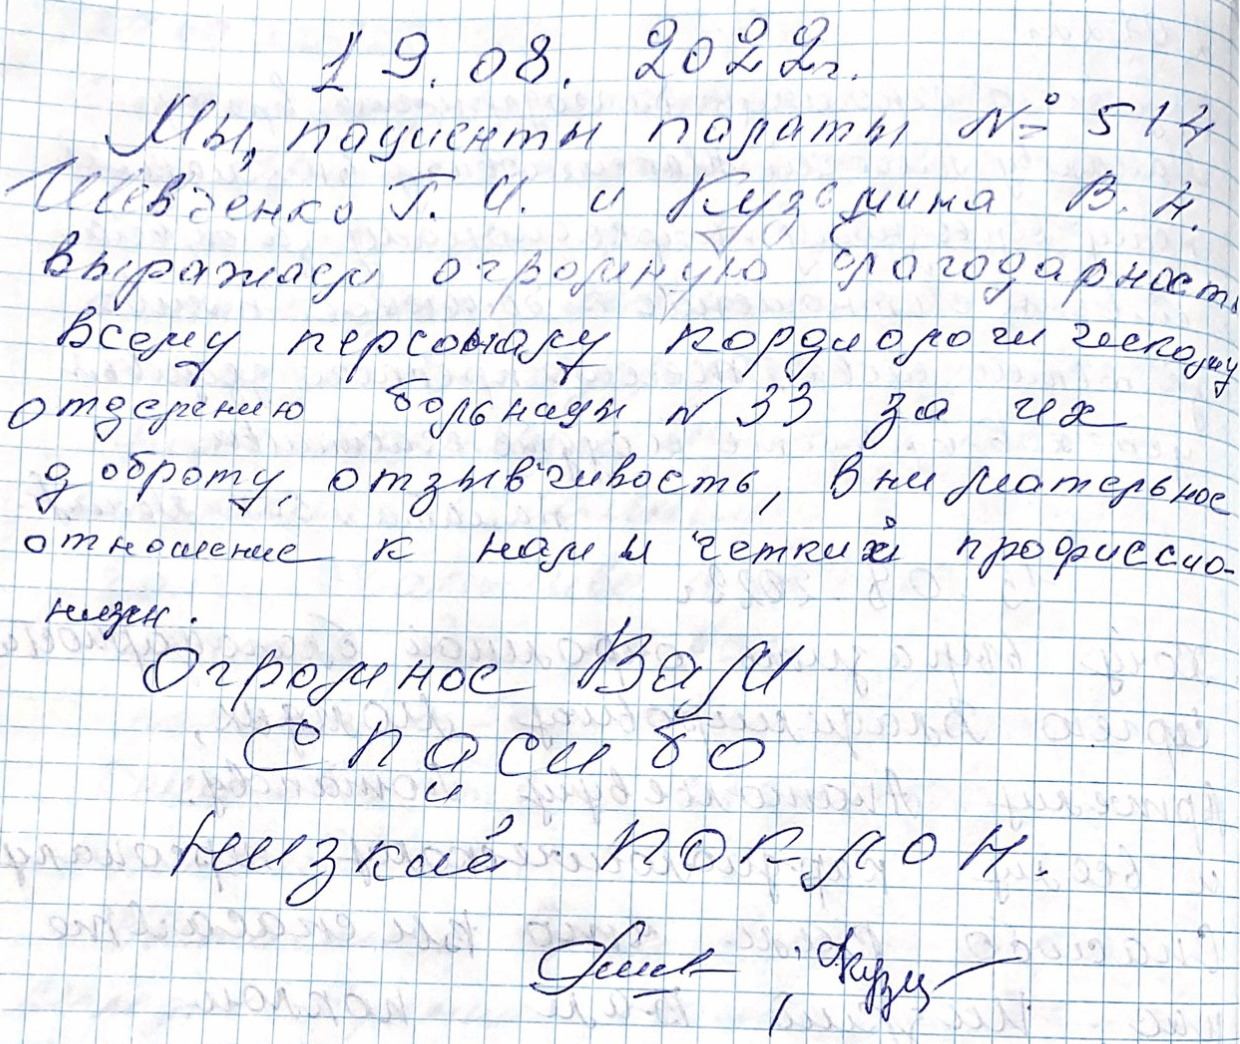 19.08.2022г.
Мы, пациенты палаты № 514
Шевченко Г.И. и Кузьмина В.Н.
выражаем огромную благодарность
всему персоналу кордиологическому
отделению больницы № 33 за их
доброту, отзывчивость, внимательное
отношение к нам и четкий профиссио-
низм.
Огромное Вам
Спасибо
и
низкий поклон.